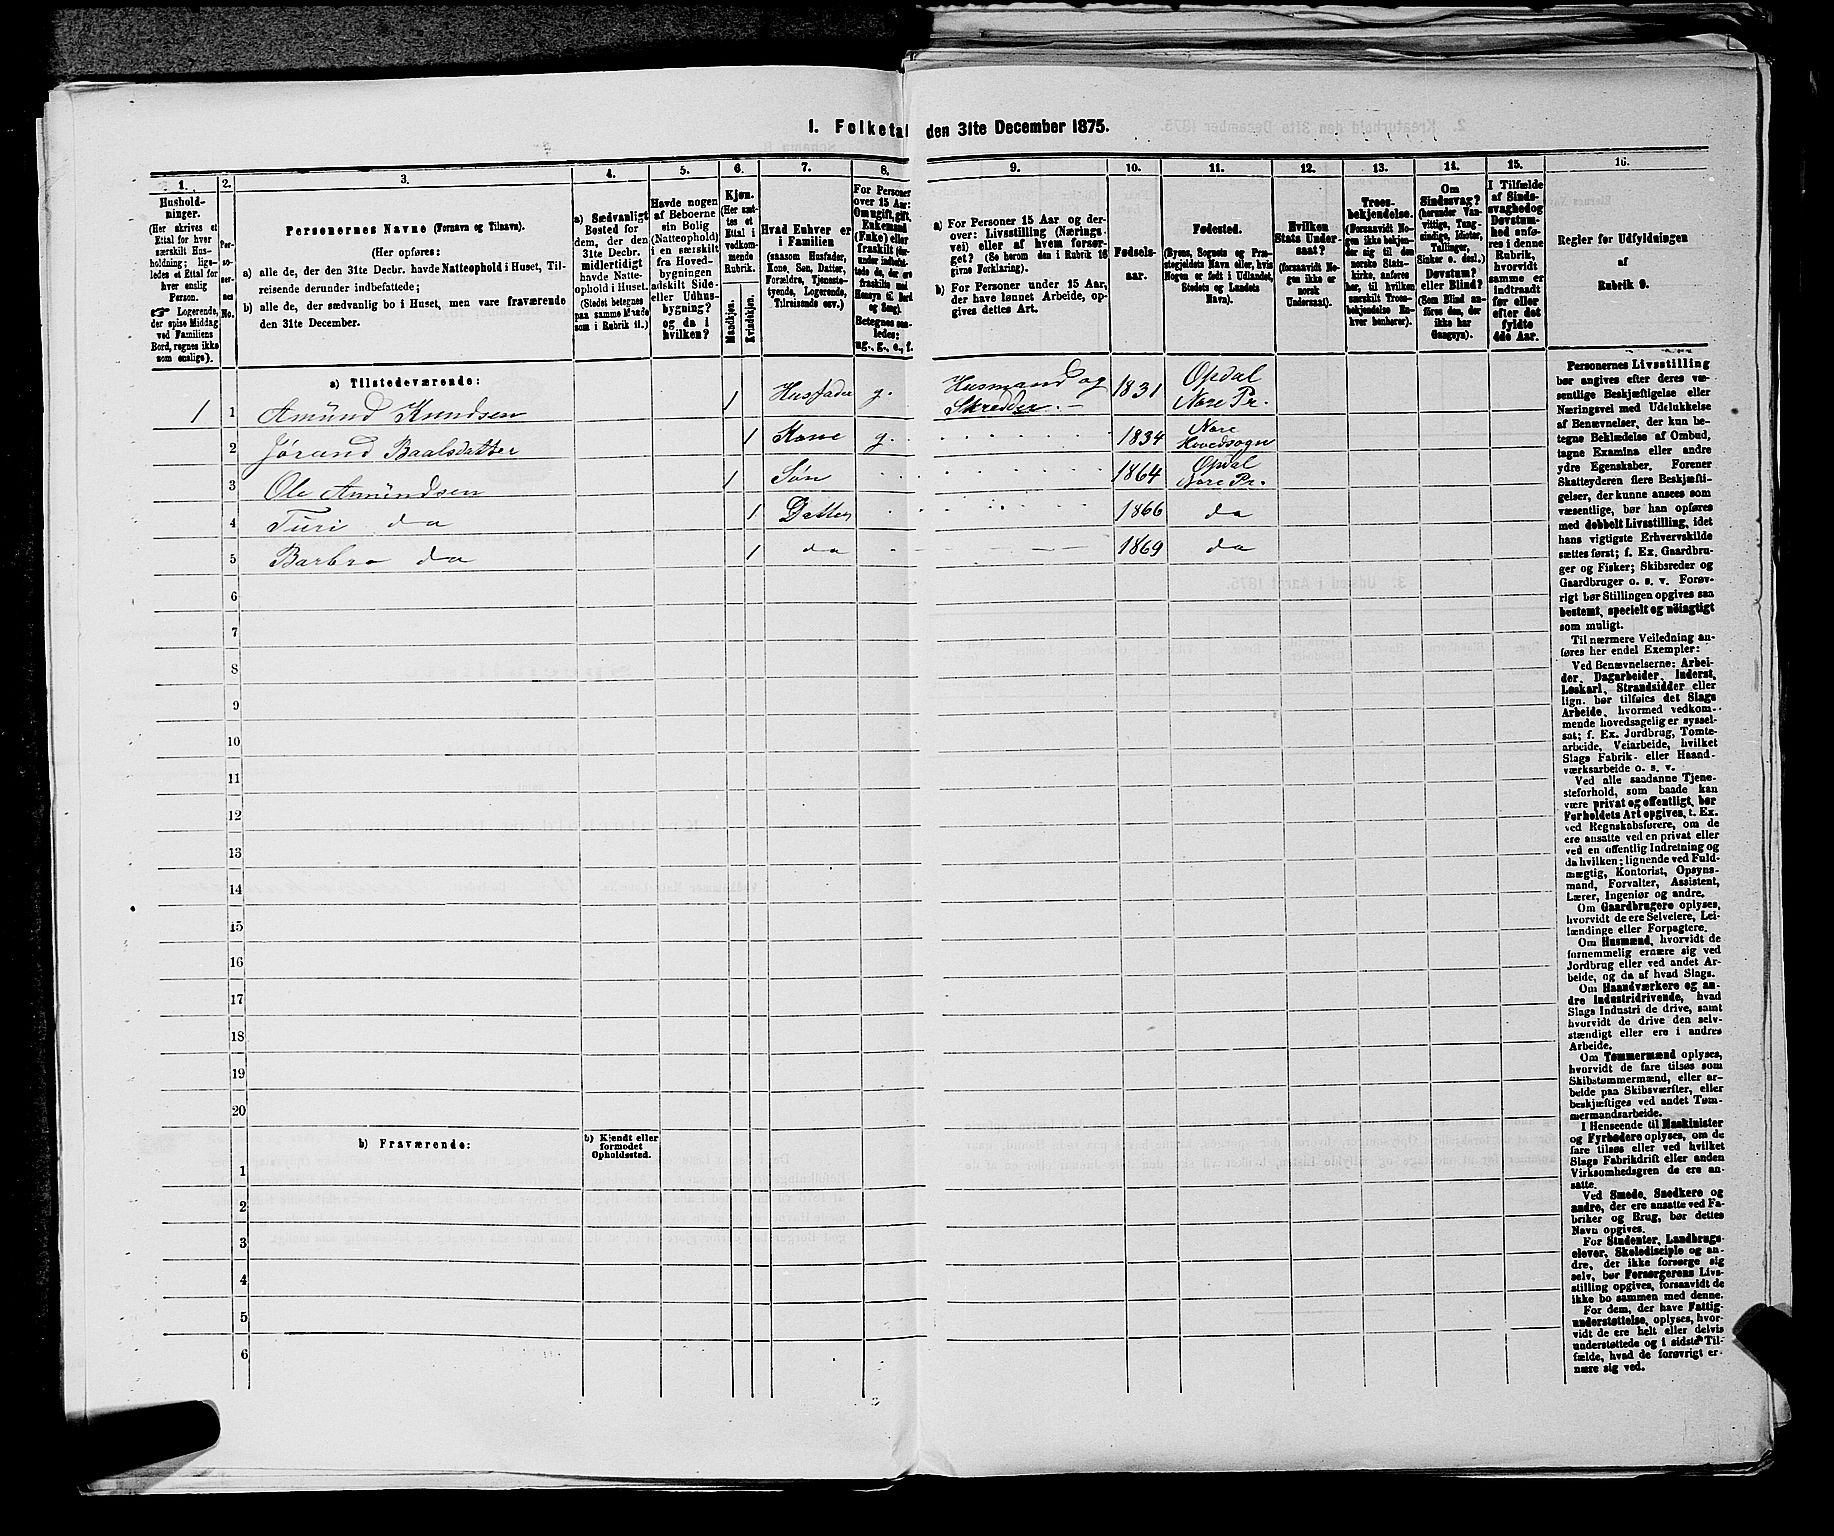 1. Folketal den 31te December 1875.
1.
Hushold-
ninger.
(Her skrives et
Ettal for hver
særskilt Hus-
holdning; lige-
ledes et Ettal for
hver enslig
Person.
☞ Logerende,
der spise Middag
ved Familiens
Bord, regnes ikke
som enslige).
2.
Per-
so-
ner-
nes
No.
3.
Personernes Navne (Fornavn og Tilnavn).
(Her opføres:
a) alle de, der den 31te Decbr. havde Natteophold i Huset, Til-
reisende derunder indbefattede;
b) alle de, der sædvanlig bo i Huset, men vare fraværende
den 31te December.
4.
a) Sædvanligt
Bosted for
dem, der den
31te Decbr.
midlertidigt
havde Natte-
ophold i Huset.
(Stedet betegnes
paa samme Maade
som i Rubrik 11.)
5.
Havde nogen
af Beboerne
sin Bolig
(Natteophold)
i en særskilt
fra Hoved-
bygningen
adskilt Side-
eller Udhus-
bygning?
og da i
hvilken?
6.
Kjøn.
(Her sæt-
tes et
Ettal i
vedkom-
mende
Rubrik.
Mandkjøn.
Kvindekjøn.
7.
Hvad Enhver er
i Familien
(saasom Husfader,
Kone, Søn, Datter,
Forældre, Tjeneste-
tyende, Logerende,
Tilreisende osv.)
8.
For Personer
over 15 Aar:
Om ugift, gift,
Enkemand
(Enke) eller
fraskilt (her-
Betegnes saa-
ledes:
ug., g., e., f.
9.
a) For Personer 15 Aar og der-
over: Livsstilling (Nærings-
vei) eller af hvem forsør-
get? (Se borem den i Rubrik 16
givne Forklaring).
b) For Personer under 15 Aar,
der have lønnet Arbeide, op-
gives dettes Art.
10.
Fødsels-
aar.
11.
Fødested.
(Byens, Sognets og Præ-
stegjeldets Navn eller, hvis
Nogen er født i Udlandet,
Stedets og Landets
Navn).
12.
Hvilken
Stats Under-
saat?
(forsaavidt No-
gen ikke er
norsk
Undersaat).
13.
Troes-
bekjendelse.
(Forsaavidt No-
gen ikke bekjen-
der sig til den
norske Stats-
kirke, anføres
her, til hvilken
særskilt Troes-
bekjendelse En-
hver henhører).
14.
Om
Sindssvag?
(herunder Van-
vittige, Tung-
sindige, Idioter,
Tullinger,
Sinker o. desl.)
Døvstum?
eller Blind?
(Som Blind an-
føres den, der
ikke har
Gangsyn).
15.
I Tilfælde
af Sinds-
svaghed og
Døvstum-
hed anfø-
res i denne
Rubrik,
hvorvidt
samme er
indtraadt
før eller
efter det
fyldte
4de Aar.
16.
Regler for Udfyldningen
af
Rubrik 9.
a) Tilstedeværende:
1 1 Amund Knudsen 1 Husfader g. Husmand og Skredder. 1831 Opdal Nore Pr.
2 Jørand Baalsdatter 1 Kone g. 1834 Nore Hovedsogn
3 Ole Amundsen 1 Søn 1864 Opdal Nore Pr.
4 Turi do 1 Datter 1866 do
5 Barbro do 1 do 1869 do
6
7
8
9
10
11
12
13
14
15
16
17
18
19
20
b) Fraværende:
b) Kjendt eller
formodet
Opholdssted.
1
2
3
4
5
6
Personernes Livsstilling
bør angives efter deres væ-
sentlige Beskjæftigelse eller
Næringsvei med Udelukkelse
af Benævnelser, der kun be-
tegne Beklædelse af Ombud,
tagne Examina eller andre
ydre Egenskaber. Forener
Skatteyderen flere Beskjæfti-
gelser, der kunne ansees som
væsentlige, bør han opføres
med dobbelt Livsstilling, idet
hans vigtigste Erhvervskilde
sættes først; f. Ex. Gaardbru-
ger og Fisker; Skibsreder og
Gaardbruger o. s. v. Forøv-
rigt bør Stillingen opgives saa
bestemt, specielt og nøiagtigt
som muligt.
Til nærmere Veiledning an-
føres her endel Exempler:
Ved Benævnelserne: Arbei-
der, Dagarbeider, Inderst,
Løskarl, Strandsidder eller
lign. bør tilføies det Slags
Arbeide, hvormed vedkom-
mende hovedsagelig er syssel-
sat; f. Ex. Jordbrug, Tomte-
arbeide, Veiarbeide, hvilket
Slags Fabrik- eller Haand-
værksarbeide o. s. v.
Ved alle saadanne Tjene-
steforhold, som baade kan
være privat og offentligt, bør
Forholdets Art opgives, t. Ex.
ved Regnskabsførere, om de
ere ansatte ved en privat eller
ved en offentlig Indretning og
da hvilken; lignende ved Fuld-
mægtig, Kontorist, Opsyns-
mand, Forvalter, Assistent,
Lærer, Ingeniør og andre.
Om Gaardbrugere oplyses,
hvorvidt de ere Selveiere, Lei-
lændinge eller Forpagtere.
Om Husmænd, hvorvidt de
fornemmelig ernære sig ved
Jordbrug eller ved andet Ar-
beide, og da af hvad Slags.
Om Haandværkere og an-
dre Industridrivende, hvad
Slags Industri de drive, samt
hvorvidt de drive den selv-
stændigt eller ere i andres
Arbeide.
Om Tømmermænd oplyses,
hvorvidt de fare tilsøs som
Skibstømmermænd, eller ar-
beide paa Skibsværfter, eller
beskjæftiges ved andet Tøm-
mermandsarbeide.
I Henseende til Maskinister
og Fyrbødere oplyses, om de
fare tilsøs eller ved hvilket
Slags Fabrikdrift eller anden
Virksomhedsgren de ere an-
satte.
Ved Smede, Snedkere og
andre, der ere ansatte ved Fa-
briker og Brug, bør dettes
Navn opgives.
For Studenter, Landbrugs-
elever, Skoledisciple og an-
dre, der ikke forsørge sig
selv, bør Forsørgerens Livs-
stilling opgives, forsaavidt de
ikke bo sammen med denne.
For dem, der have Fattig-
understøttelse, oplyses, hvor-
vidt de ere helt eller delvis
understøttede og i sidste Til-
fælde, hvad de forøvrigt er-
nære sig ved.